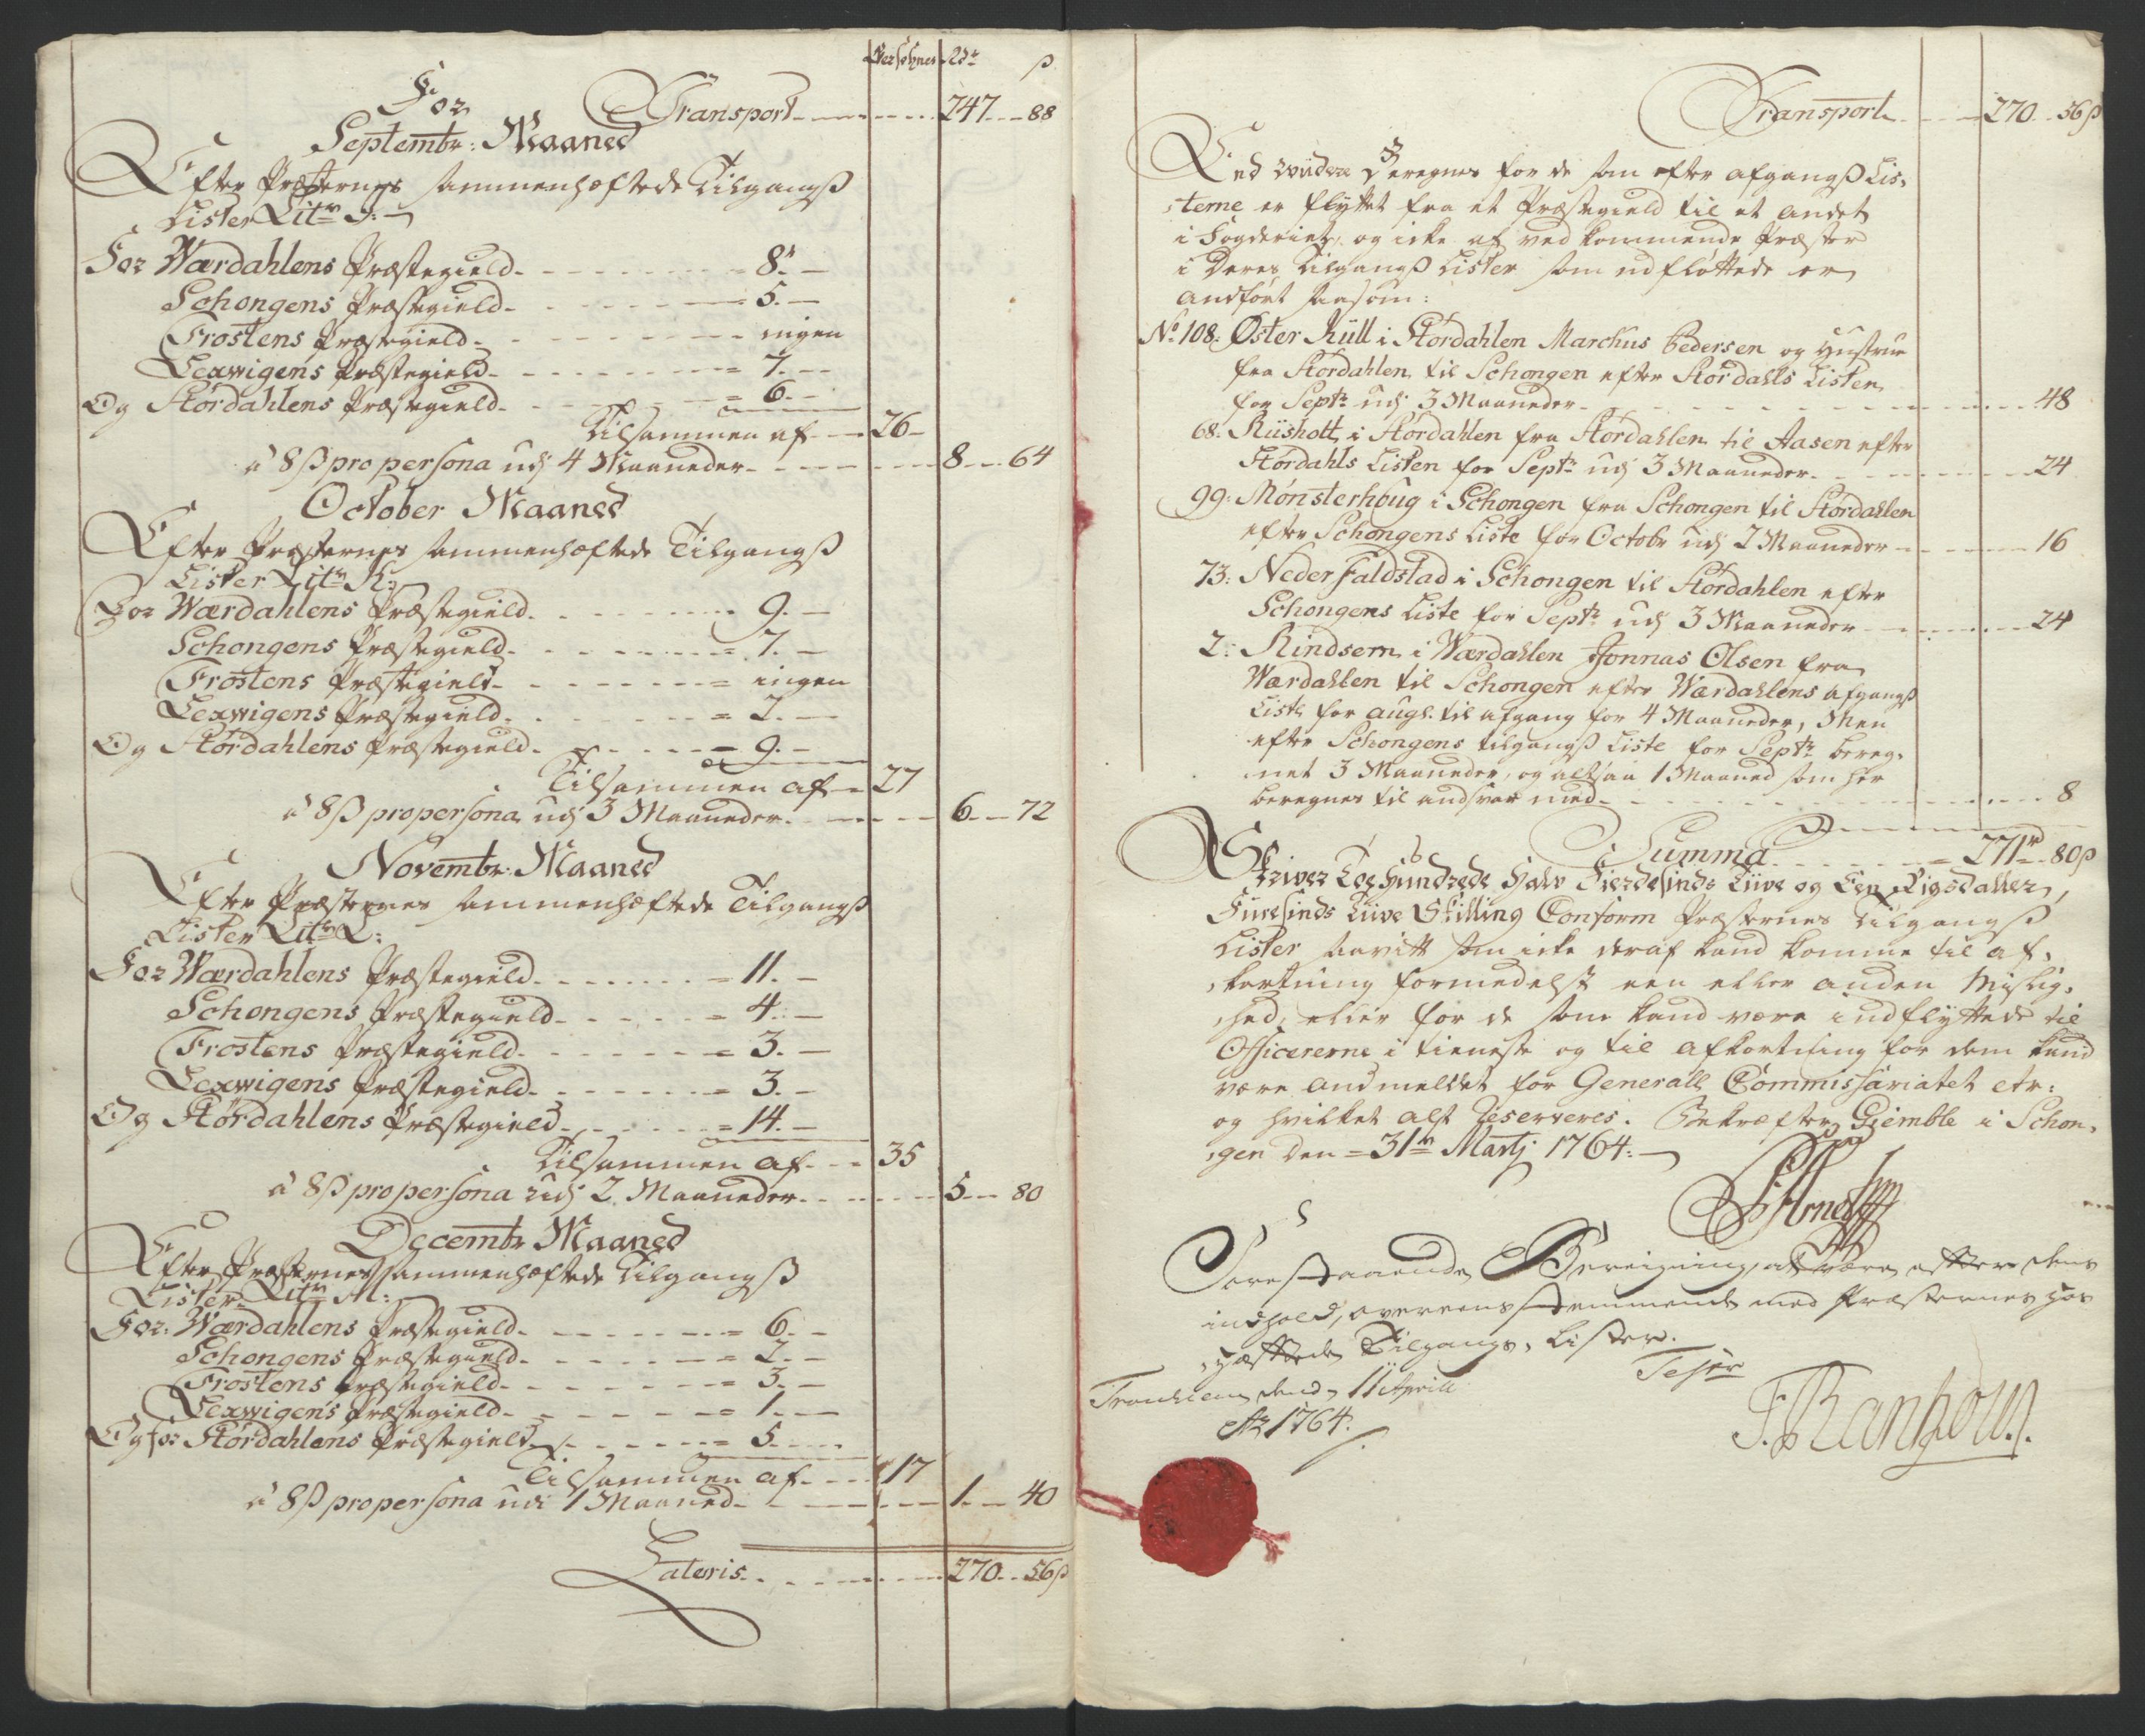 Persohner Rdr ß
For Transport 247 88
Septembr: Maaned
Efter Præsternes sammenhæftede Tilgangs
Lister Litr I:
For Wærdahlens Præstegield 8
Schongens Præstegield 5
Frostens Præstegield ingen
Lexwigens Præstegield 7
Og Størdahlens Præstegield 6
Tilsammen af 26
á 8 ß pro persona udj 4 Maaneder 8 64
October Maaned
Efter Præsternes sammenhæftede Tilgangs
Lister Litr K:
For Wærdahlens Præstegield 9
Schongens Præstegield 7
Frostens Præstegield ingen
Lexwigens Præstegield 2
Og Størdahlens Præstegield 9
Tilsammen af 27
á 8 ß pro persona udj 3 Maaneder 6 72
Novembr: Maaned
Efter Præsternes sammenhæftede Tilgangs
Lister Litr L:
For Wærdahlens Præstegield 11
Schongens Præstegield 4
Frostens Præstegield 3
Lexwigens Præstegield 3
Og Størdahlens Præstegield 14
Tilsammen af 35
á 8 ß pro persona udj 2 Maaneder 5 80
Decembr Maaned
Efter Præsternes sammenhæftede Tilgangs
Lister Litr M:
For Wærdahlens Præstegield 6
Schongens Præstegield 2
Frostens Præstegield 3
Lexwigens Præstegield 1
Og for Størdahlens Præstegield 5
Tilsammen af 17
á 8 ß pro persona udi 1 Maaned 1 40
Lateris 270 56 ß
Transport 270 56 ß
End widere beregnes for de som efter afgangs Lis-
terne er flyttet fra et Præstegield til et andet
i Fogderiet, og icke af vedkommende Præster
i Deres Tilgangs Lister som udfløttede er
andført saasom:
No 108: Øster Küll i Størdahlen Marchus Pedersen og Hustrue
fra Størdahlen til Schongen efter Størdahls Listen
for Septr udj 3 Maaneder 48
68. Riisholt i Størdahlen fra Størdahlen til Aasen efter
Størdahls Listen for Septr udj 3 Maaneder 24
99: Mønsterhoug i Schongen fra Schongen til Størdahlen
efter Schongens Liste for Octobr udj 2 Maaneder 16
73: Neder Faldstad i Schongen til Størdahlen efter
Schongens Liste for Septr udj 3 Maaneder 24
2: Rindsem i Wærdahlen Jonnas Olsen fra
Wærdahlen til Schongen efter Wærdahlens afgangs
Liste for Augl. til afgang for 4 Maaneder, Men
efter Schongens tilgangs Liste for Septr bereg-
net 3 Maaneder, og altsaa 1 Maaned som her
beregnes til andsvar med 8
Summa 271 rd 80 ß
Skriver Toe Hundrede Halv Fierdesinds Tiive og Een Rigsdaller,
Fiiresinds Tiive Skilling Conform Præsternes Tilgangs
Lister saavitt som icke deraf kand komme til af-
kortning formedelst een eller anden Mislig-
hed, eller for de som kand være indflyttede til
Officererne i tieneste og til afkortning for dem kand
være andmeldet for Generall Commissariatet etc:
og hvilket alt Reserveres. Bekræfter Giemble i Schon-
gen den 31te Martj 1764.
Forestaaende Beregning at være efter dens
indhold, overeensstemmende med Præsternes hos
hæftede Tilgangs, Lister.
Tronhiem dend 11 Aprill Tester
Ao 1764.